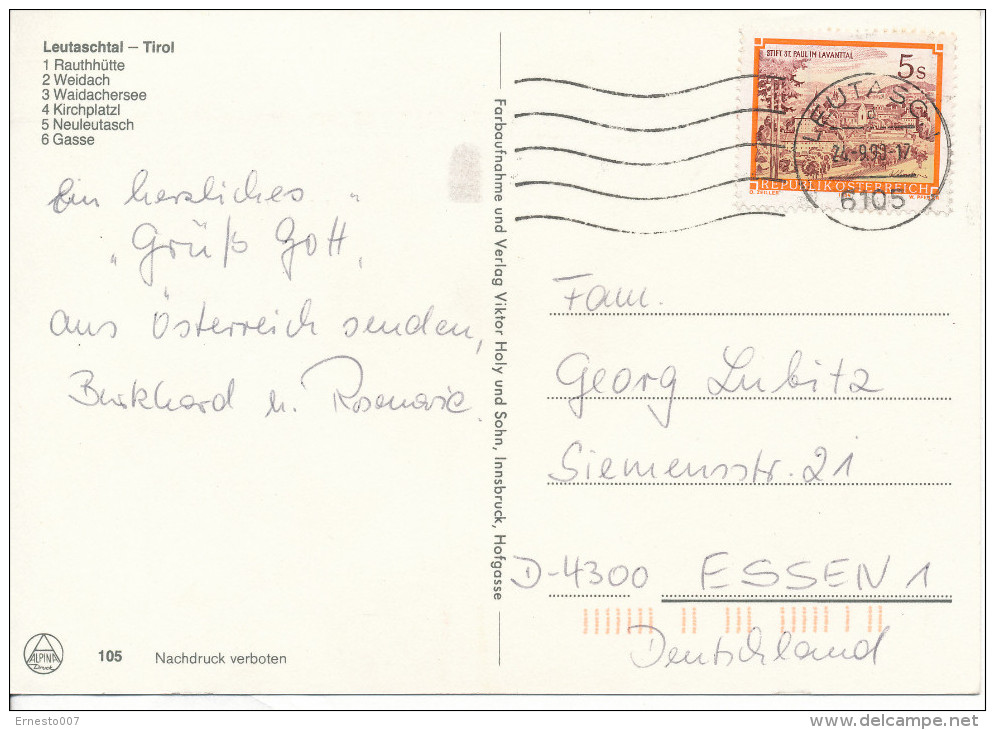 Leutaschtal – Tirol
1 Rauthhütte
2 Weidach
3 Waidachersee
4 Kirchplatzl
5 Neuleutasch
6 Gasse
Ein herzliches
„Grüß Gott"
aus Österreich senden,
Burkhard u. Rosemarie.
ALPINA
Druck
105 Nachdruck verboten
Farbaufnahme und Verlag Viktor Holy und Sohn, Innsbruck, Hofgasse
STIFT ST. PAUL IM LAVANTTAL
5 s
REPUBLIK ÖSTERREICH
LEUTASCH
6105
Fam.
Georg Lubitz
Siemensstr. 21
D-4300 ESSEN 1
Deutschland
Ernesto007
delcampe.net